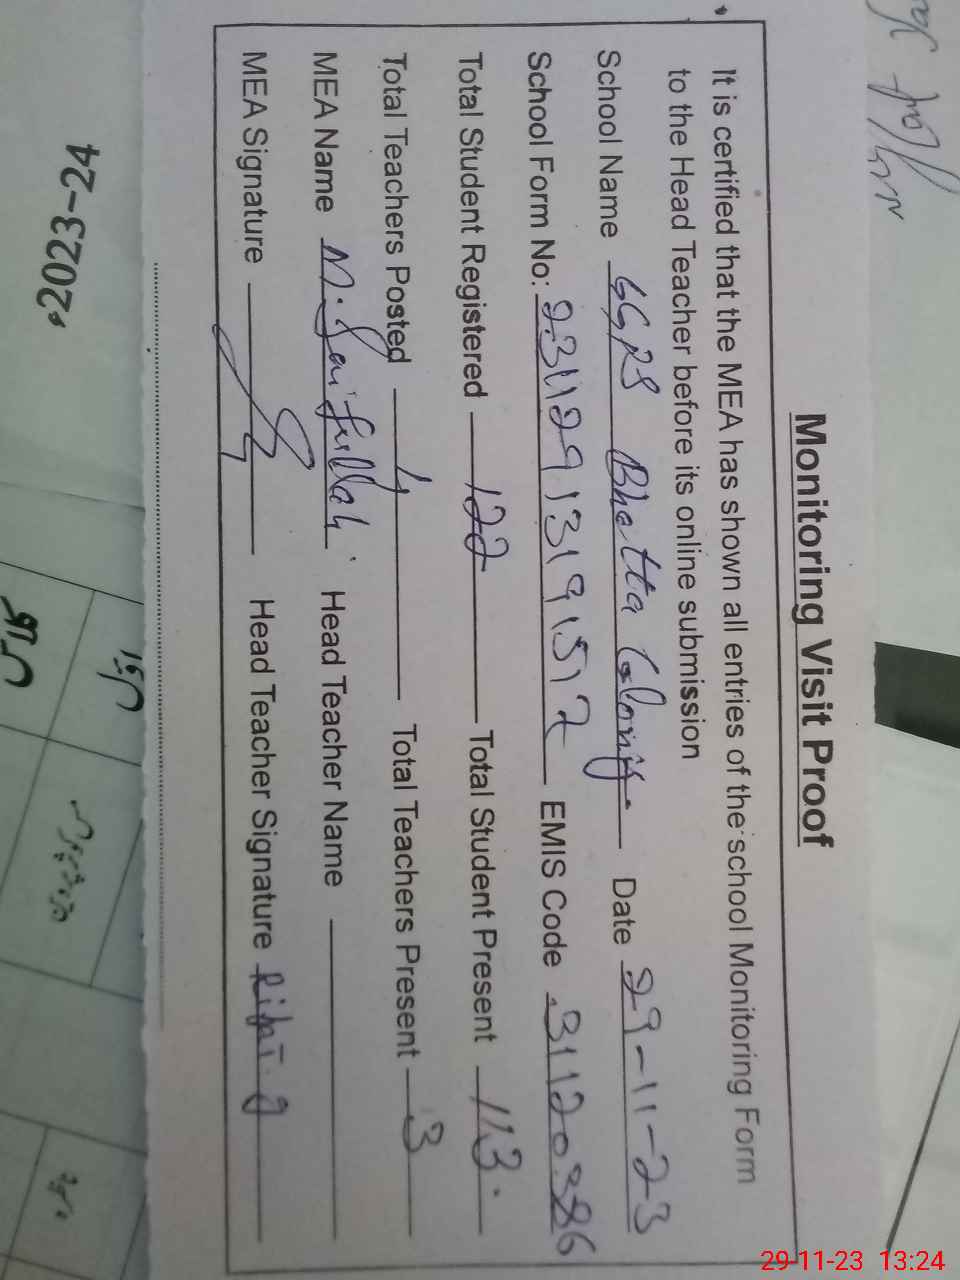 Monitoring Visit Proof
It is certified that the MEA has shown all entries of the school Monitoring Form
to the Head Teacher before its online submission
School Name GGPS Bhatta Colony Date 29-11-23
School Form No: EMIS Code 31120386
Total Student Registered 122 Total Student Present 113
Total Teachers Posted 4 Total Teachers Present 3
MEA Name M. Saifullah Head Teacher Name
MEA Signature Head Teacher Signature
2023-24
29-11-23 13:24